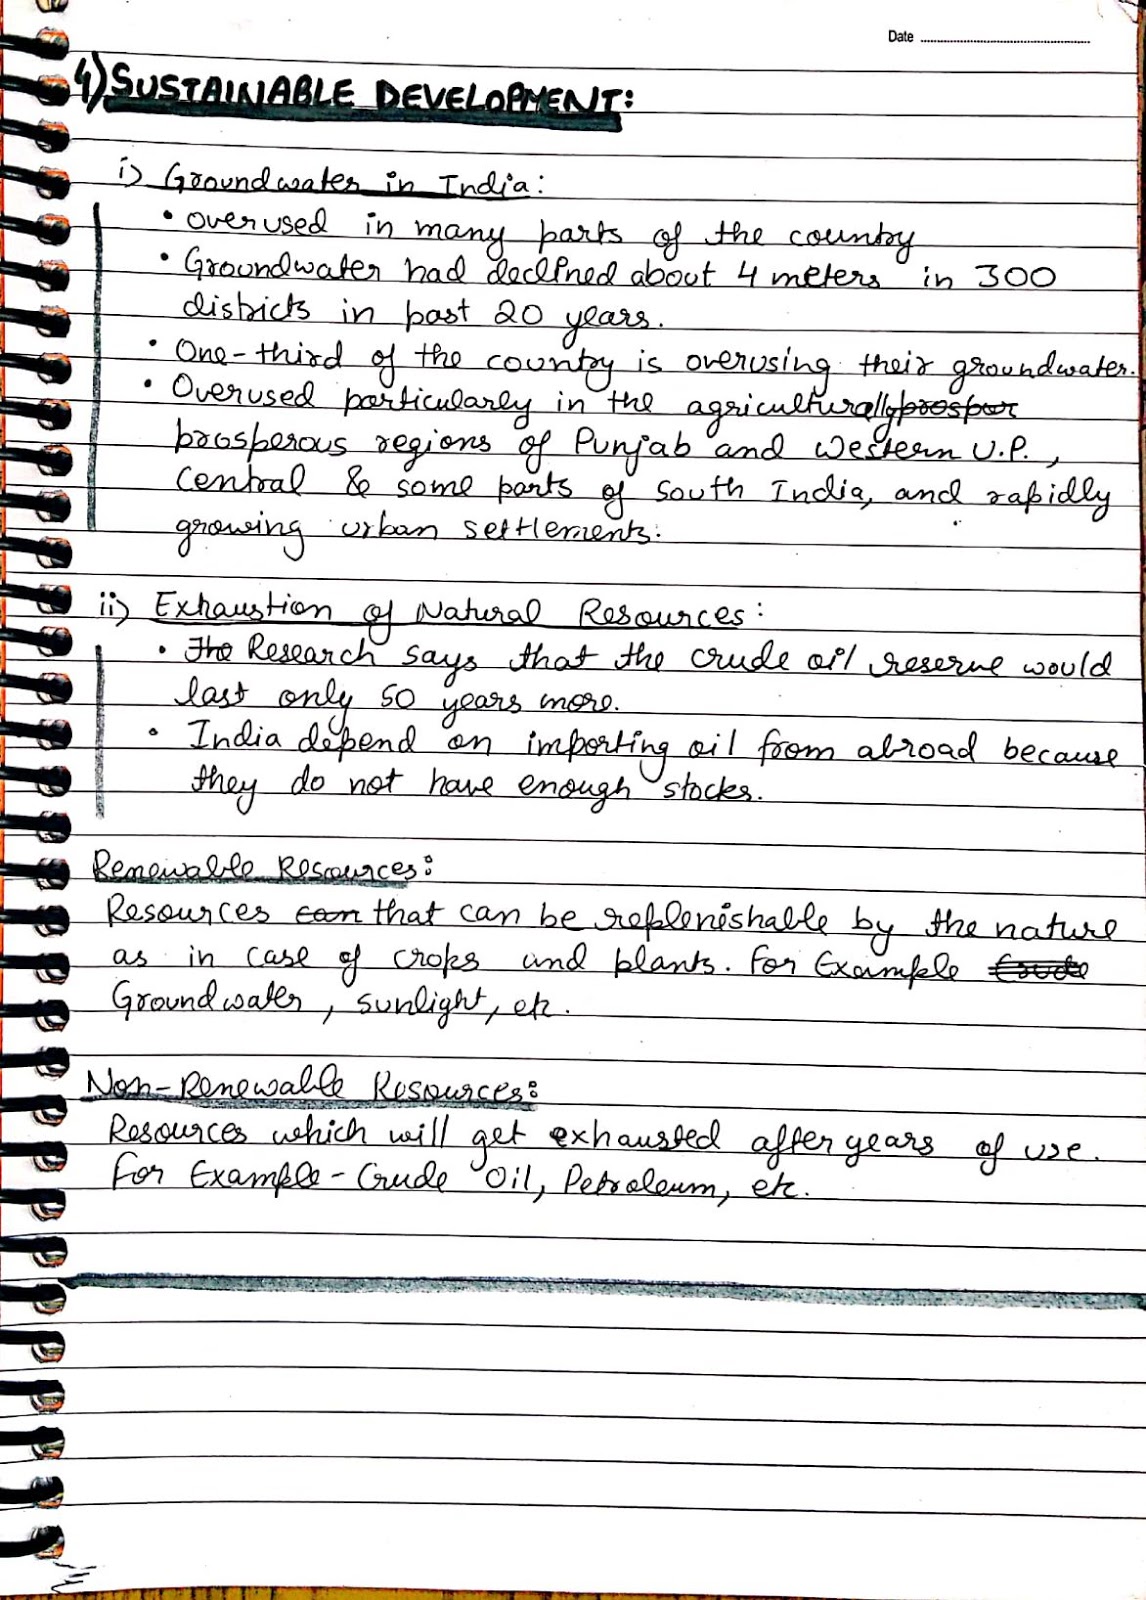 Date
4) SUSTAINABLE DEVELOPMENT:
i) Groundwater in India:
• overused in many parts of the country
• Groundwater had declined about 4 meters in 300
districts in past 20 years.
• One-third of the country is overusing their groundwater.
• Overused particularly in the agriculturally prospur
prosperous regions of Punjab and Western U.P.,
Central & some parts of South India, and rapidly
growing urban settlements.
ii) Exhaustion of Natural Resources:
• The Research says that the crude oil reserve would
last only 50 years more.
• India depend on importing oil from abroad because
they do not have enough stocks.
Renewable Resources:
Resources can that can be replenishable by the nature
as in case of crops and plants. For Example Crude
Groundwater, sunlight, etc.
Non-Renewable Resources:
Resources which will get exhausted after years of use.
For Example - Crude Oil, Petroleum, etc.